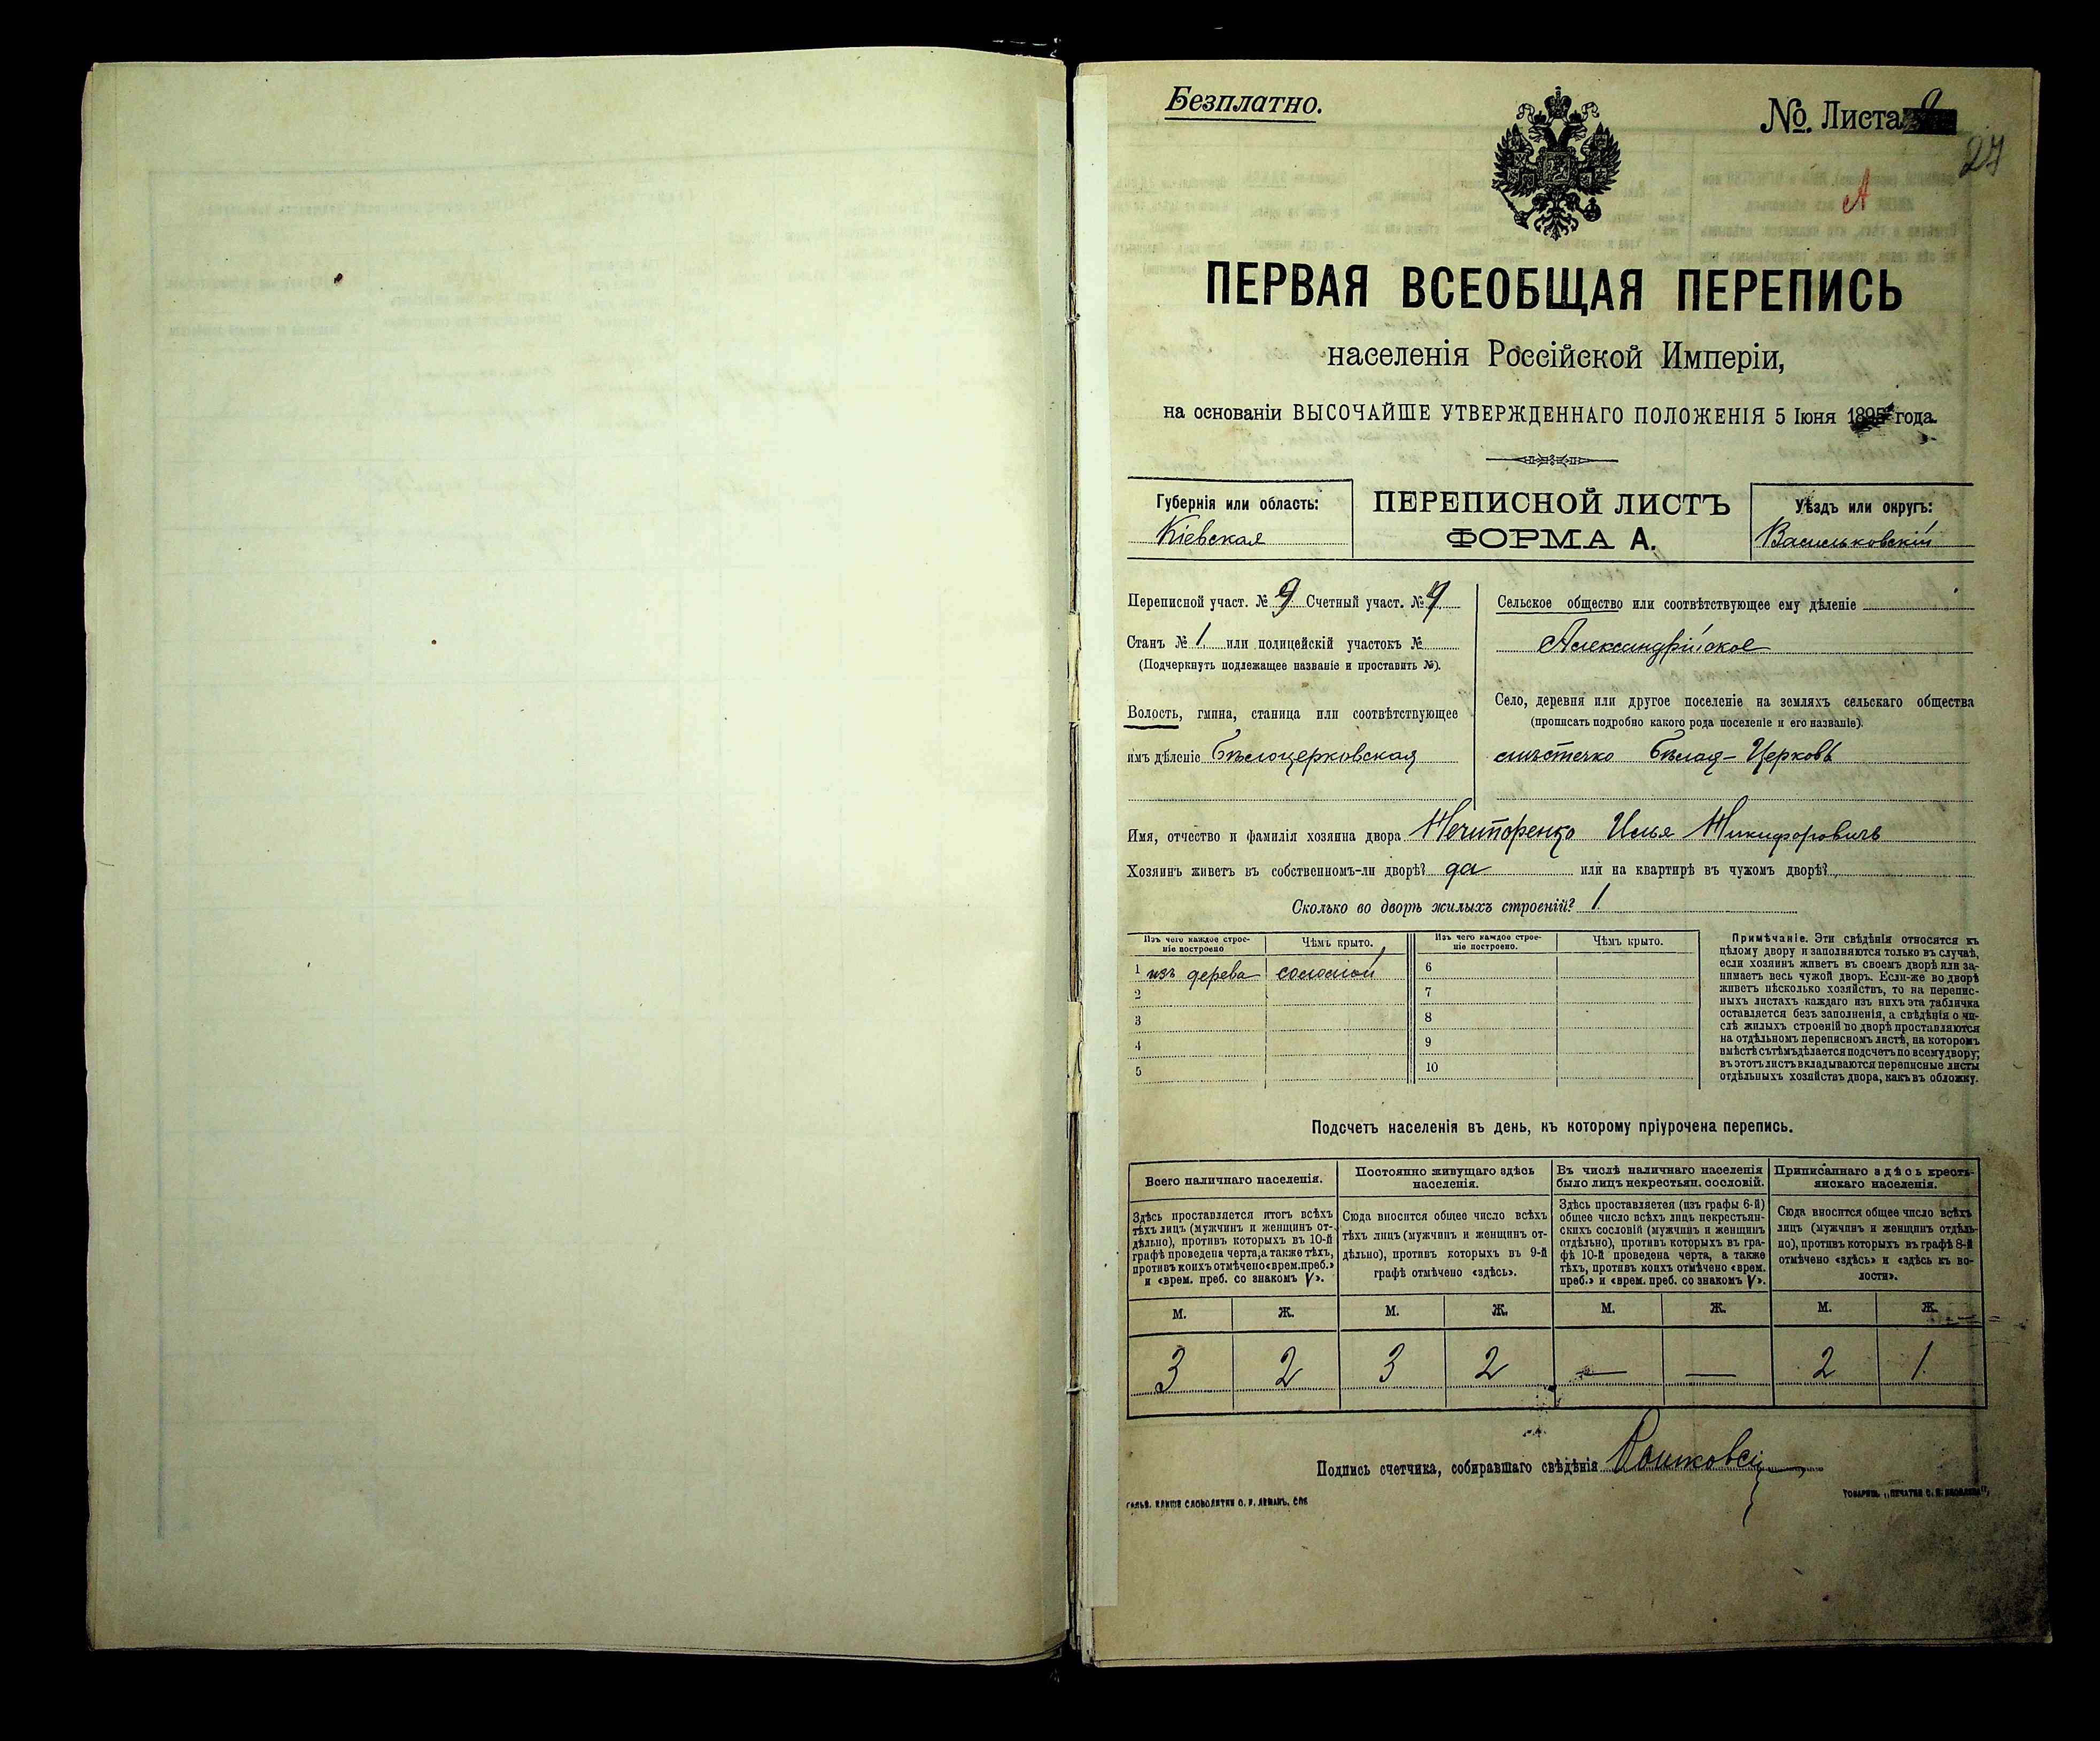 Безплатно.
№. Листа
27
А
ПЕРВАЯ ВСЕОБЩАЯ ПЕРЕПИСЬ
населенія Россійской Имперіи,
на основаніи ВЫСОЧАЙШЕ УТВЕРЖДЕННАГО ПОЛОЖЕНІЯ 5 Іюня 1895 года.
Губернія или область:
Кіевская
ПЕРЕПИСНОЙ ЛИСТЪ
ФОРМА А.
Уѣздъ или округъ:
Васильковскій
Переписной участ. № 9 Счетный участ. № 9
Станъ № 1 или полицейскій участокъ №
(Подчеркнуть подлежащее названіе и проставить №).
Волость, гмина, станица или соотвѣтствующее
имъ дѣленіе Бѣлоцерковская
Сельское общество или соотвѣтствующее ему дѣленіе
Александрійское
Село, деревня или другое поселеніе на земляхъ сельскаго общества
(прописать подробно какого рода поселеніе и его названіе).
мѣстечко Бѣлая-Церковь
Имя, отчество и фамилія хозяина двора Нечипоренко Илья Никифоровичъ
Хозяинъ живетъ въ собственномъ-ли дворѣ? да или на квартирѣ въ чужомъ дворѣ?
Сколько во дворѣ жилыхъ строеній? 1.
Изъ чего каждое строе-
ніе построено
Чѣмъ крыто.
Изъ чего каждое строе-
ніе построено.
Чѣмъ крыто.
1 изъ дерева соломой
2
3
4
5
6
7
8
9
10
Примѣчаніе. Эти свѣдѣнія относятся къ
цѣлому двору и заполняются только въ случаѣ,
если хозяинъ живетъ въ своемъ дворѣ или за-
нимаетъ весь чужой дворъ. Если-же во дворѣ
живетъ нѣсколько хозяйствъ, то на перепис-
ныхъ листахъ каждаго изъ нихъ эта табличка
оставляется безъ заполненія, а свѣдѣнія о чи-
слѣ жилыхъ строеній во дворѣ проставляются
на отдѣльномъ переписномъ листѣ, на которомъ
вмѣстѣ съ тѣмъ дѣлается подсчетъ по всему двору;
въ этотъ листъ вкладываются переписные листы
отдѣльныхъ хозяйствъ двора, какъ въ обложку.
Подсчетъ населенія въ день, къ которому пріурочена перепись.
Всего наличнаго населенія.
Здѣсь проставляется итогъ всѣхъ
тѣхъ лицъ (мужчинъ и женщинъ от-
дѣльно), противъ которыхъ въ 10-й
графѣ проведена черта, а также тѣхъ,
противъ коихъ отмѣчено «врем. преб.»
и «врем. преб. со знакомъ V».
Постоянно живущаго здѣсь
населенія.
Сюда вносится общее число всѣхъ
тѣхъ лицъ (мужчинъ и женщинъ от-
дѣльно), противъ которыхъ въ 9-й
графѣ отмѣчено «здѣсь».
Въ числѣ наличнаго населенія
было лицъ некрестьян. сословій.
Здѣсь проставляется (изъ графы 6-й)
общее число всѣхъ лицъ некрестьян-
скихъ сословій (мужчинъ и женщинъ
отдѣльно), противъ которыхъ въ гра-
фѣ 10-й проведена черта, а также
тѣхъ, противъ коихъ отмѣчено «врем.
преб.» и «врем. преб. со знакомъ V».
Приписаннаго здѣсь кресть-
янскаго населенія.
Сюда вносится общее число всѣхъ
лицъ (мужчинъ и женщинъ отдѣль-
но), противъ которыхъ въ графѣ 8-й
отмѣчено «здѣсь» и «здѣсь къ во-
лости».
М. Ж. М. Ж. М. Ж. М. Ж.
3 2 3 2 — — 2 1.
Подпись счетчика, собиравшаго свѣдѣнія